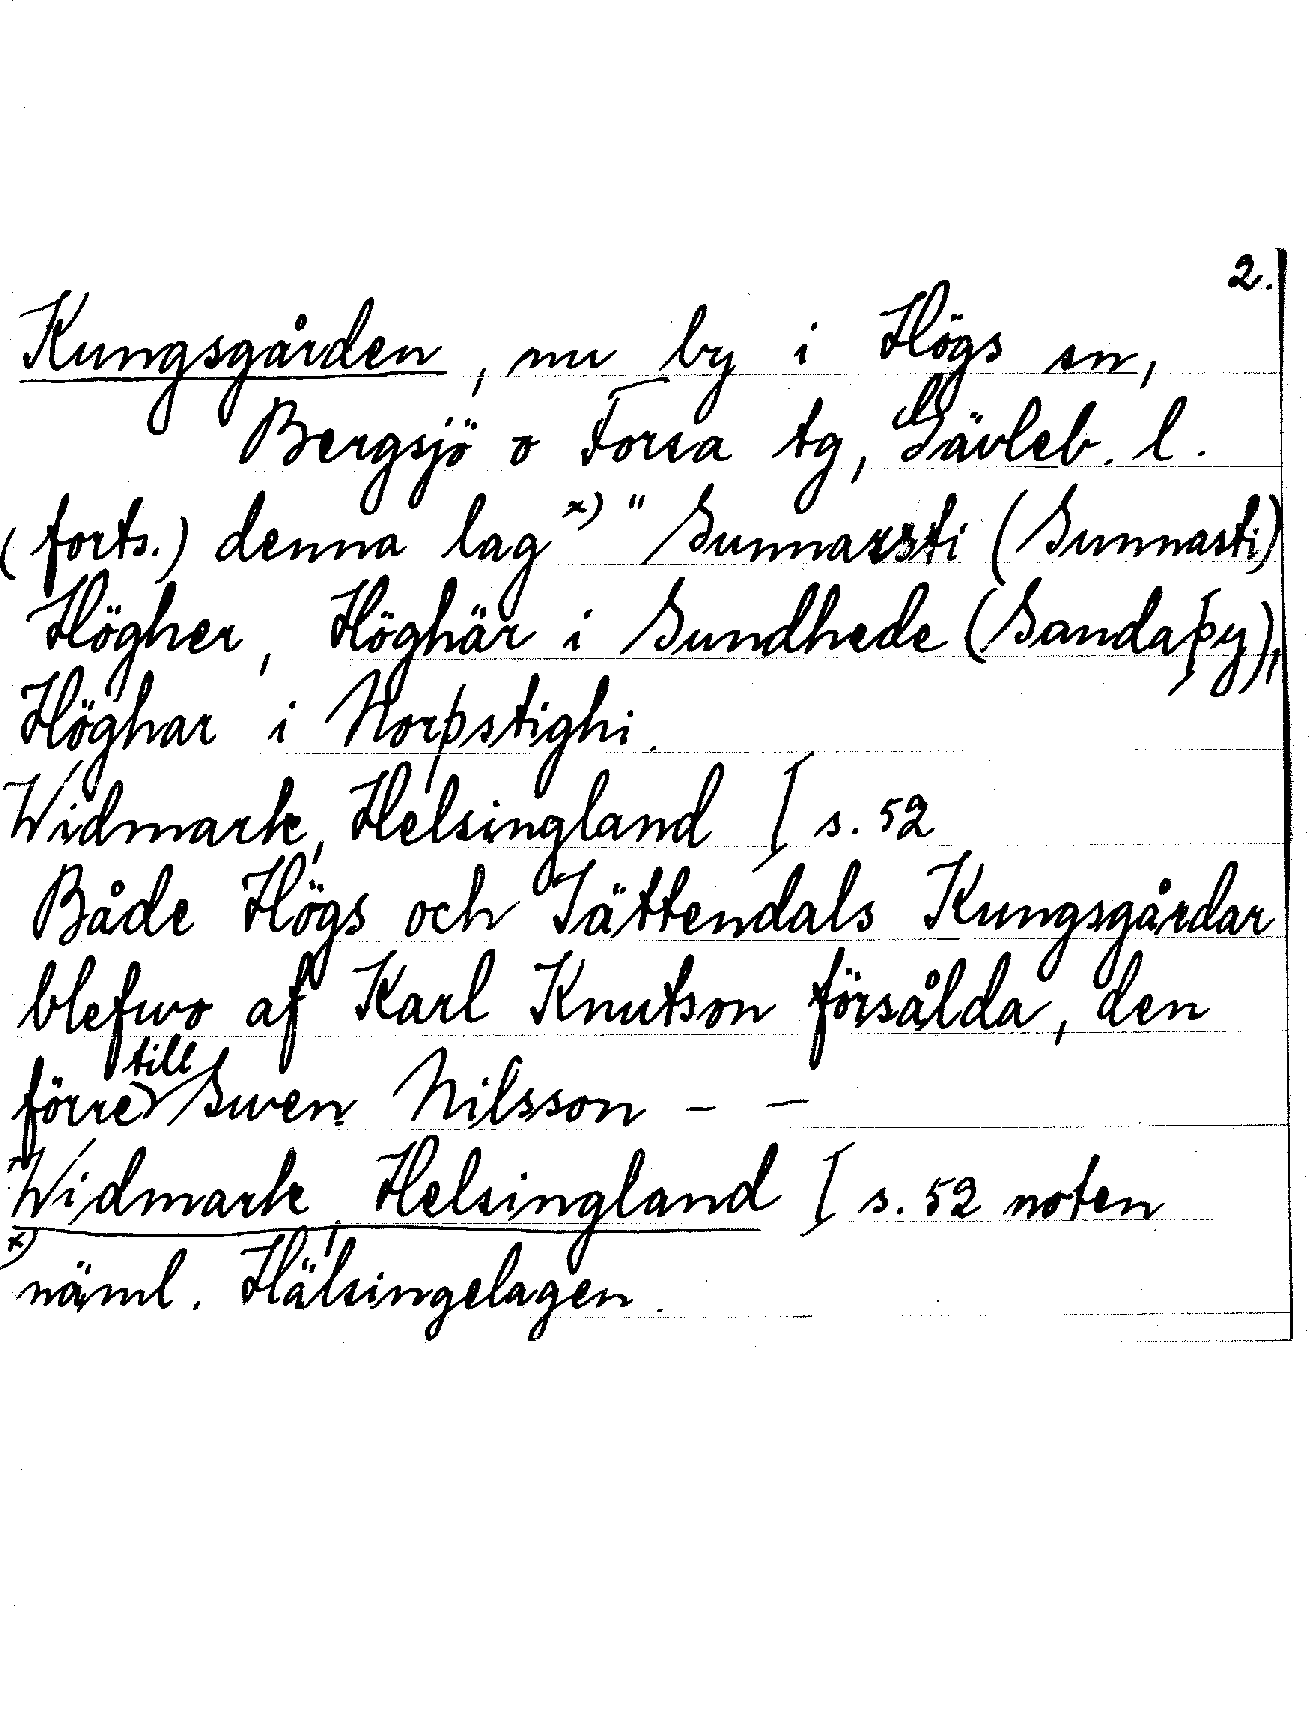 2.
Kungsgården, nu by i Högs sn,
Bergsjö o Forsa tg, Gävleb. l.
(forts.) denna lag x) " Sunnarsti (Sunnasti)
Högher, Höghär i Sundhede (Sandaþy),
Höghar i Norþstighi.
Widmark, Helsingland I s. 52
Både Högs och Jättendals Kungsgårdar
blefwo af Karl Knutson försålda, den
förre till Swen Nilsson – –
Widmark, Helsingland I s. 52 noten
x) näml. Hälsingelagen.